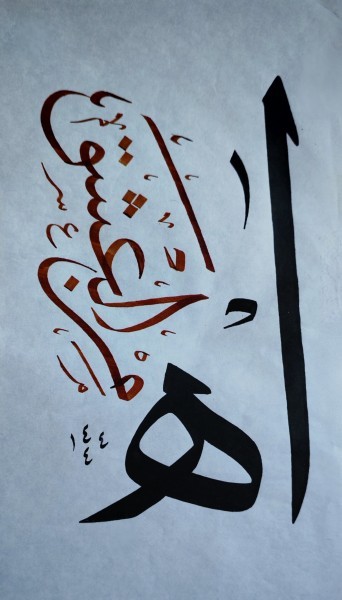 اه
من العشق
١٤٤٤